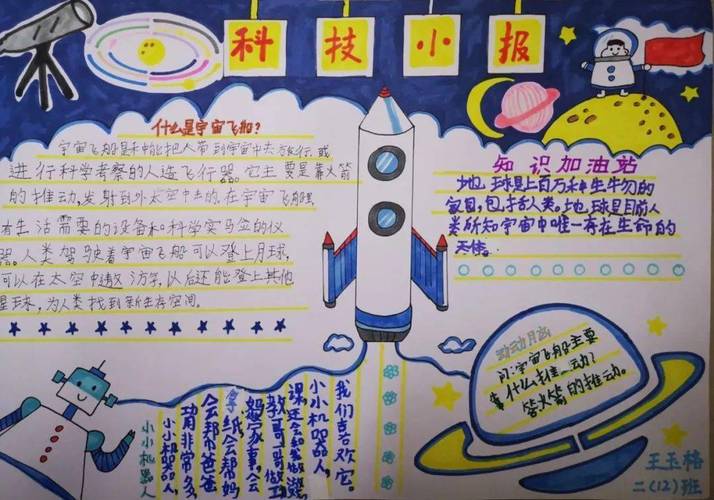 科技小报
什么是宇宙飞船?
宇宙飞船是种能把人带到宇宙中去放行,或
进行科学考察的人造飞行器。它主要是靠火箭
的推动,发射到外太空中去的。在宇宙飞船里
有生活需要的设备和科学实验的仪
器。人类驾驶着宇宙飞船可以登上月球,
可以在太空中遨游,以后还能登上其他
星球,为人类找到新生存空间。
知识加油站
地球是上百万种生物的
家园,包括人类。地球是目前人
类所知宇宙中唯一存在生命的
天体。
小小机器人
小小机器人
用非常多,
会帮爸爸
拿纸,会帮妈
妈家事,会
教哥哥做工
课还会和做游
小小机器人,
我们喜欢它。
动动
问:宇宙飞船主要
靠什么推动?
答火箭的推动。
王玉格
二(12)班